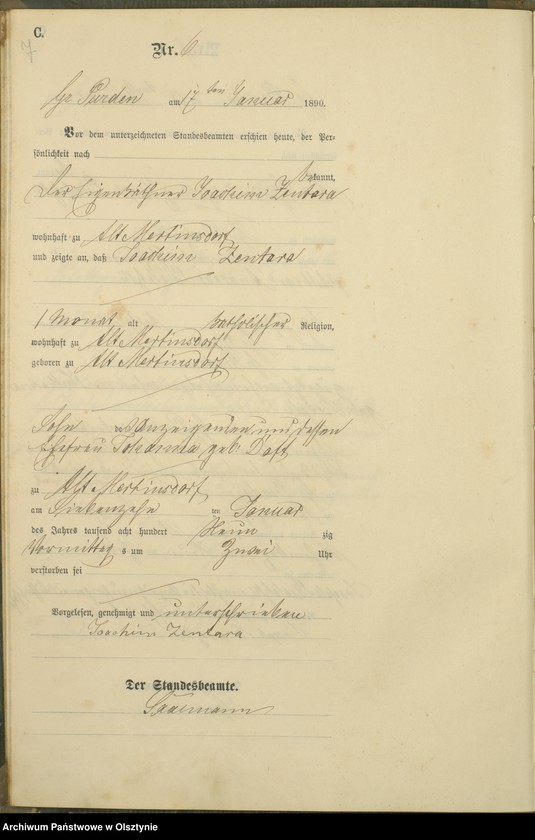 C.
7
Nr. 6
Gr. Purden am 17 ten Januar 1890.
Vor dem unterzeichneten Standesbeamten erschien heute, der Per-
sönlichkeit nach
bekannt,
der Eigenkäthner Joachim Zentara
wohnhaft zu Alt Mertinsdorf
und zeigte an, daß Joachim Zentara
1 Monat alt katholischer Religion,
wohnhaft zu Alt Mertinsdorf
geboren zu Alt Mertinsdorf
Sohn des Anzeigenden und dessen
Ehefrau Johanna geb.
zu Alt Mertinsdorf
am Siebenzehn ten Januar
des Jahres tausend acht hundert Neun zig
Vormittag s um Zwei Uhr
verstorben sei
Vorgelesen, genehmigt und unterschrieben
Joachim Zentara
Der Standesbeamte.
Archiwum Państwowe w Olsztynie